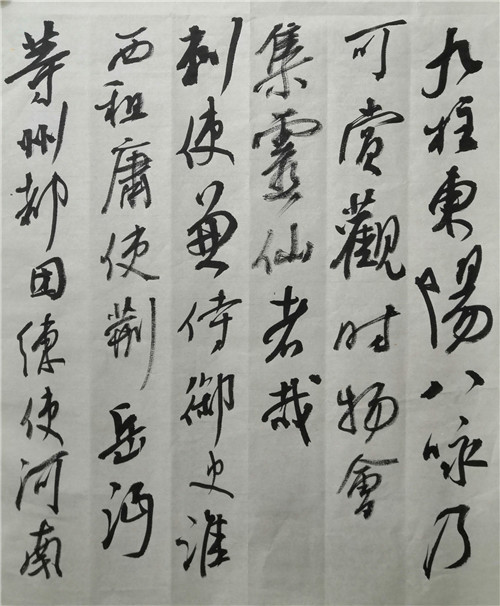 九柱東陽八咏乃
可賞觀时物會
集靈仙者哉
刺使兼侍御史淮
西租庸使荆岳沔
等州都团練使河南